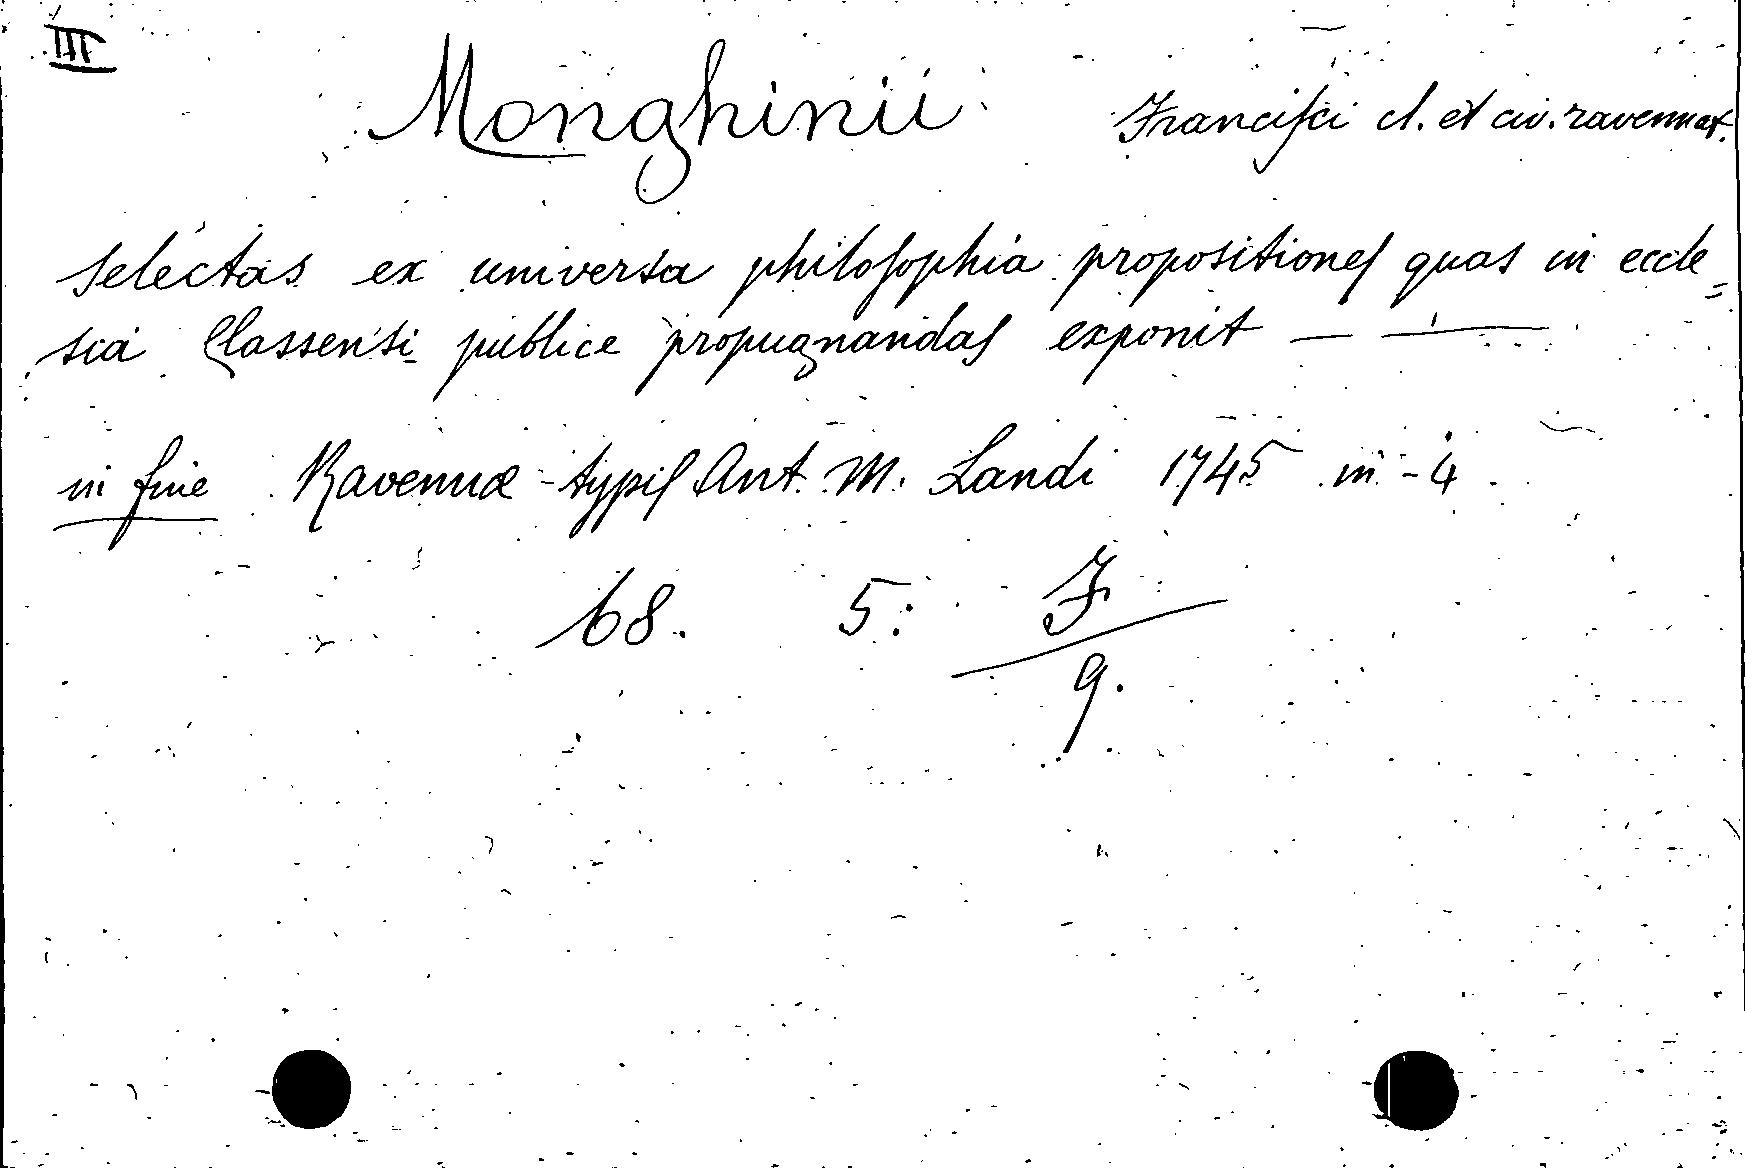 III
Monghinii Francisci cl. et civ. ravennat.
Selectas ex universa philosophia propositiones quas in eccle=
sia Classensi publice propugnandas exponit — —
in fine Ravennæ typis Ant. M. Landi 1745 in-4
68. 5: F
9.